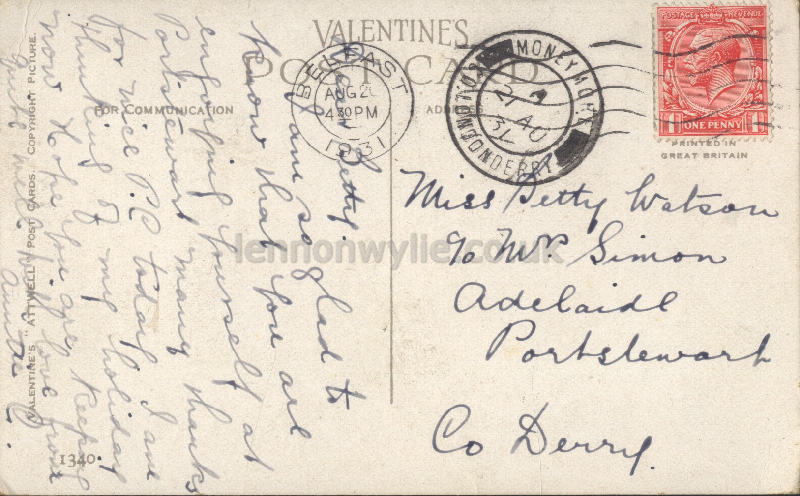 VALENTINES
POST CARD
FOR COMMUNICATION
ADDRESS
Dear Betty.
I am so glad to
know that you are
enjoying yourself at
Portstewart many thanks
for nice P.C. today. I am
thinking of my holiday
now. Hope you are keeping
quite well. love from
Auntie
BELFAST
AUG 20
4 30 PM
1931
MONEYMORE
LONDONDERRY
21 AU
31
POSTAGE REVENUE
ONE PENNY
PRINTED IN
GREAT BRITAIN
Miss Betty Watson
c/o Mr. Simon
Adelaide
Portstewart
Co Derry.
lennonwylie.co.uk
VALENTINE'S "ATTWELL" POST CARDS. COPYRIGHT PICTURE.
1340.